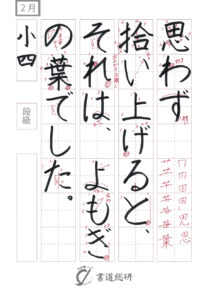 2月
思わず
拾い上げると、
それは、よもぎ
の葉でした。
小四
段級
書道総研